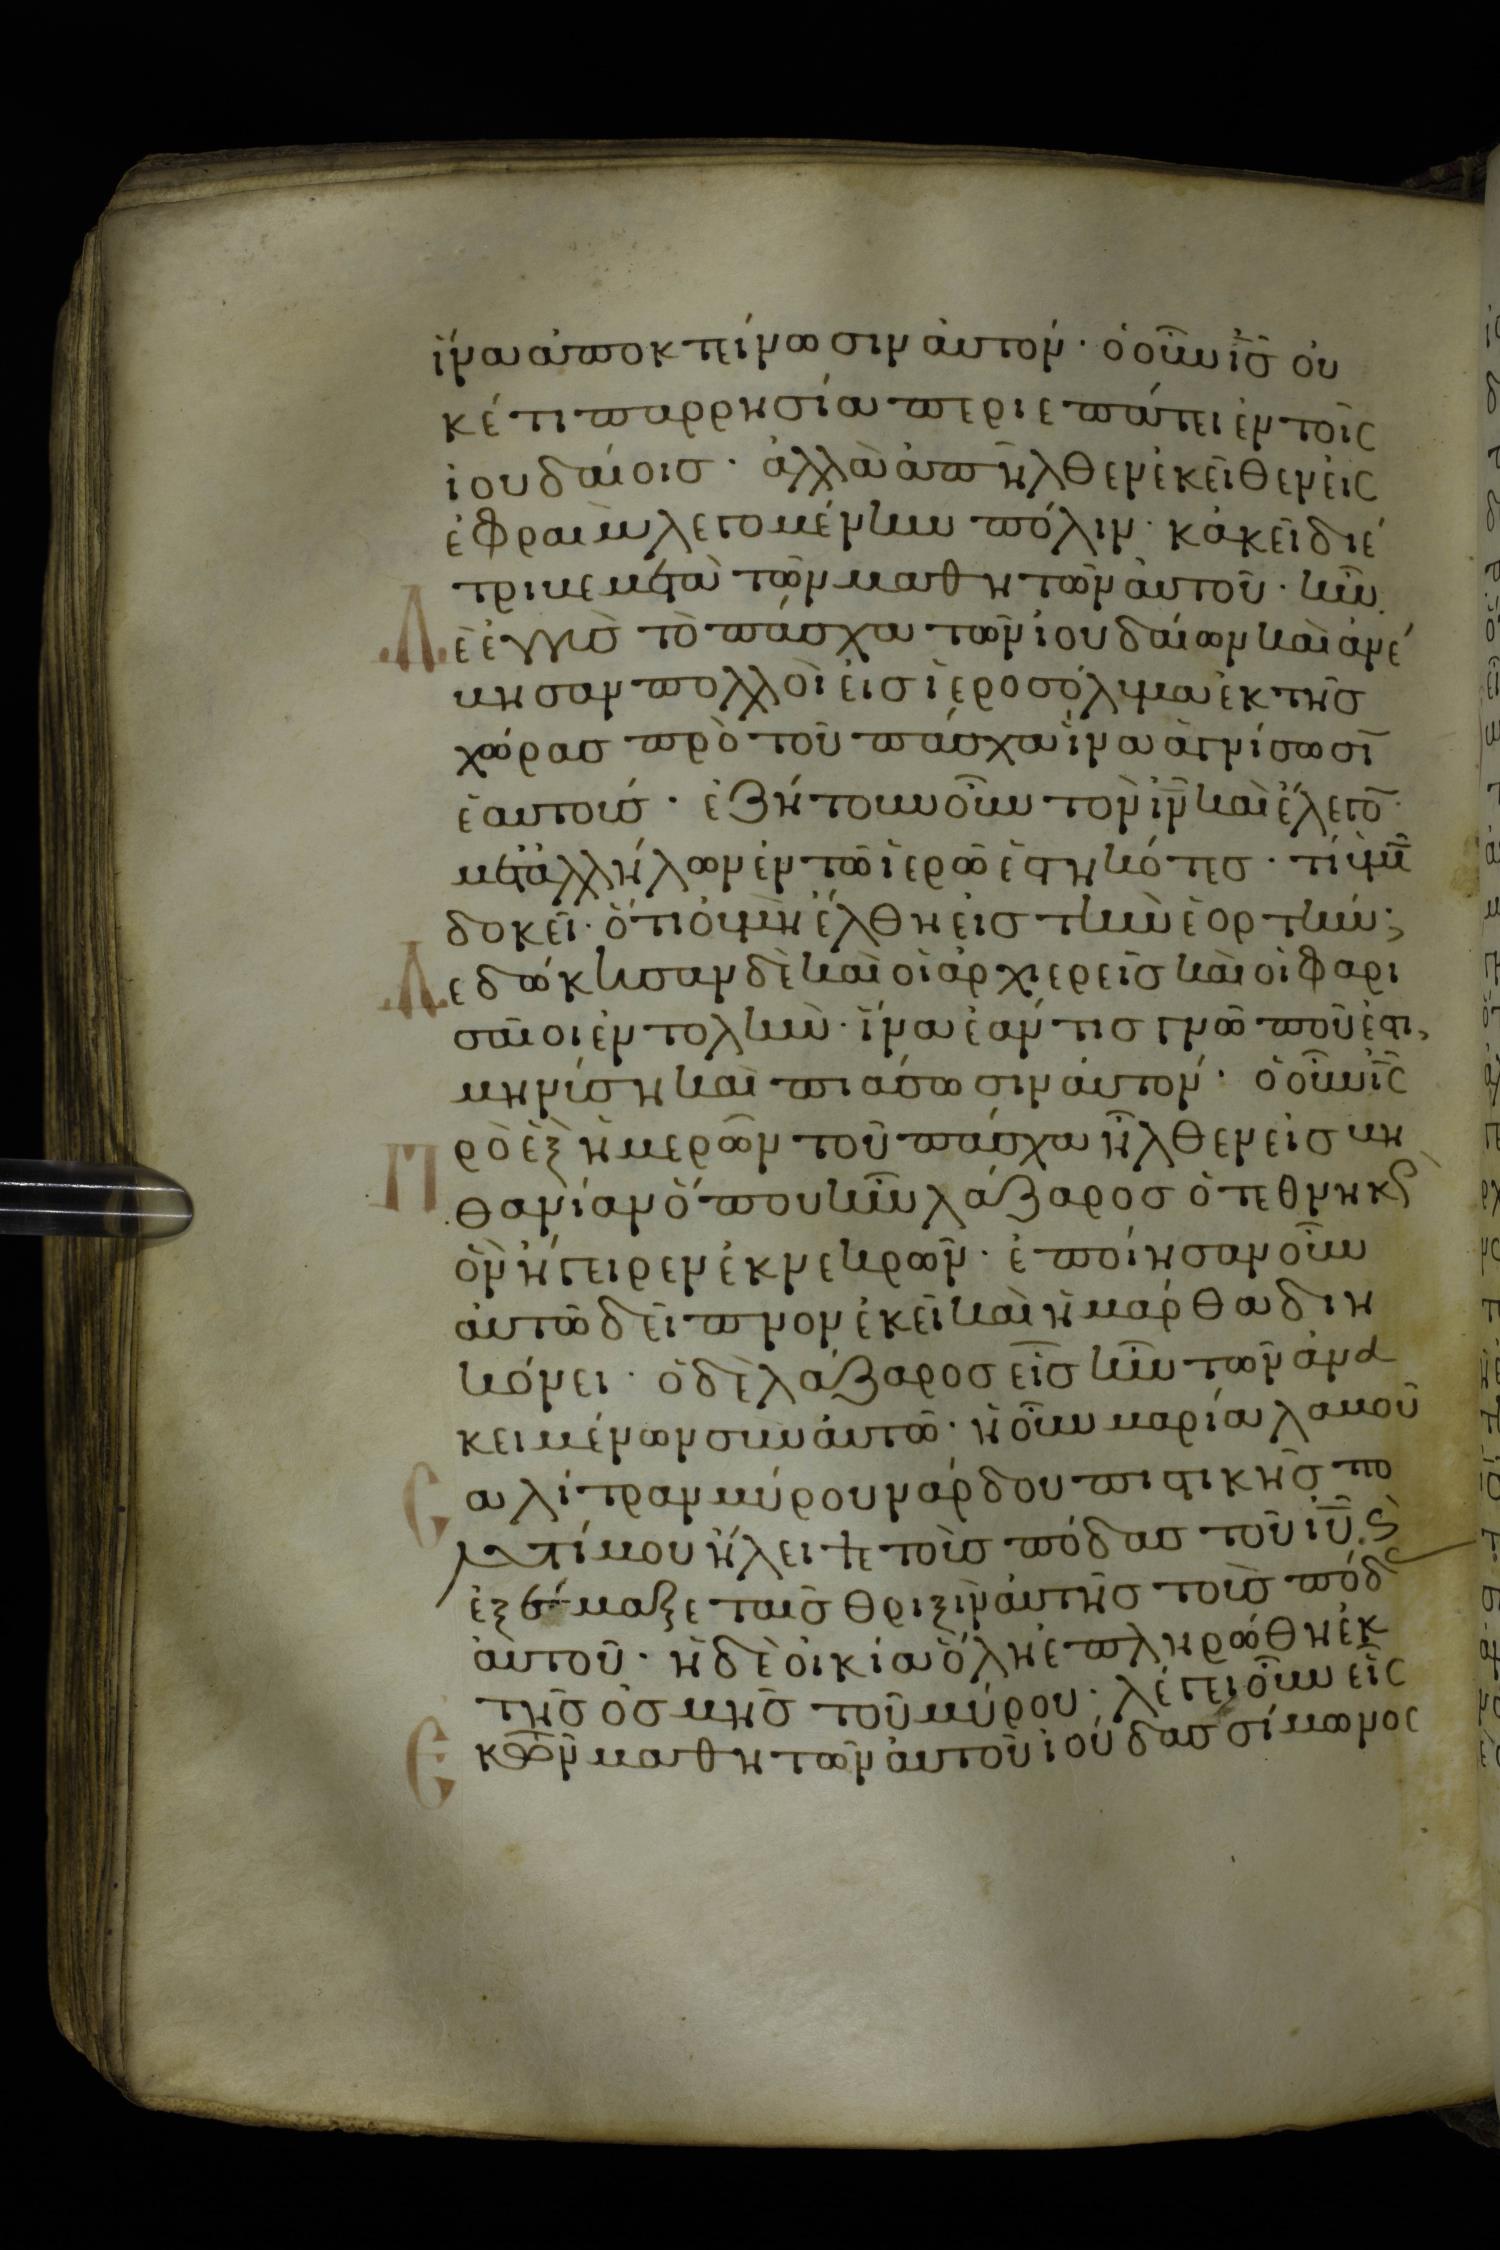 ἵνα ἀποκτείνωσιν αὐτόν · ὁ οὖν ις οὐ
κέτι παρρησία περιεπάτει ἐν τοῖς
ἰουδαίοις · ἀλλὰ ἀπῆλθεν ἐκεῖθεν εἰς
ἐφραὶμ λεγομένην πόλιν · κἀκεῖ διέ
τριβε μετὰ τῶν μαθητῶν αὐτοῦ · ἦν
Δὲ ἐγγὺς τὸ πάσχα τῶν ἰουδαίων καὶ ἀνέ
βησαν πολλοὶ εἰς ἱεροσόλυμα ἐκ τῆς
χώρας πρὸ τοῦ πάσχα ἵνα ἁγνίσωσῖ
ἑαυτούς · ἐζήτουν οὖν τὸν ιν καὶ ἔλεγο
μετἀλλήλων ἐν τῶ ἱερῶ ἑστηκότες · τί ὑμῖ
δοκεῖ · ὅτι οὐ μὴ ἔλθη εἰς τὴν ἑορτήν;
Δεδώκησαν δὲ καὶ οἱ ἀρχιερεῖς καὶ οἱ φαρι
σαῖοι ἐντολὴν · ἵνα ἐάν τις γνῶ ποῦ ἐστι,
μηνύση καὶ πιάσωσιν αὐτόν · ὁ οὖν ις
Πρὸ ἓξ ἡμερῶν τοῦ πάσχα ἦλθεν εἰς βη
θανίαν ὅπου ἦν λάζαρος ὁ τεθνηκς
ὃν ἤγειρεν ἐκ νεκρῶν · ἐποίησαν οὖν
αὐτῶ δεῖπνον ἐκεῖ καὶ ἡ μάρθα διη
κόνει · ὁ δὲ λάζαρος εἷς ἦν τῶν ἀνα
κειμένων σὺν αὐτῶ · ἡ οὖν μαρία λαβοῦ
Σα λίτραν μύρου νάρδου πιστικῆς πο
λυτίμου ἤλειψε τοὺς πόδας τοῦ ιυ. ϛ
ἐξέμαξε ταῖς θριξὶν αὐτῆς τοὺς πόδ
αὐτοῦ · ἡ δὲ οἰκία ὅλη ἐπληρώθη ἐκ
τῆς ὀσμῆς τοῦ μύρου · λέγει οὖν εἷς
Ἐκ τῶν μαθητῶν αὐτοῦ ἰούδας σίμωνος